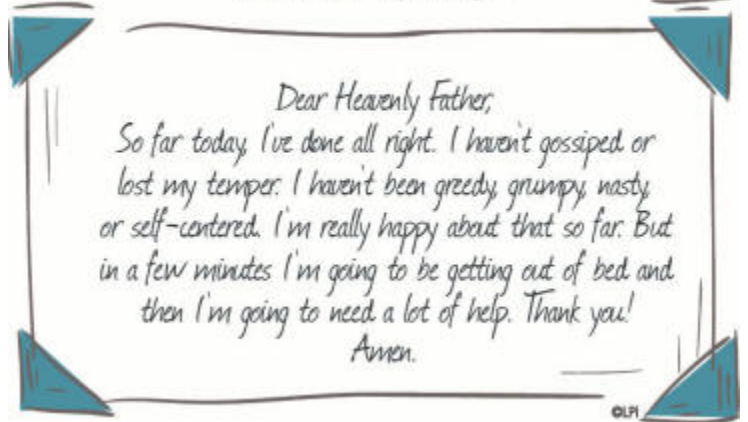 Dear Heavenly Father,
So far today, I've done all right. I haven't gossiped or
lost my temper. I haven't been greedy, grumpy, nasty,
or self-centered. I'm really happy about that so far. But
in a few minutes I'm going to be getting out of bed and
then I'm going to need a lot of help. Thank you!
Amen.
©LPi